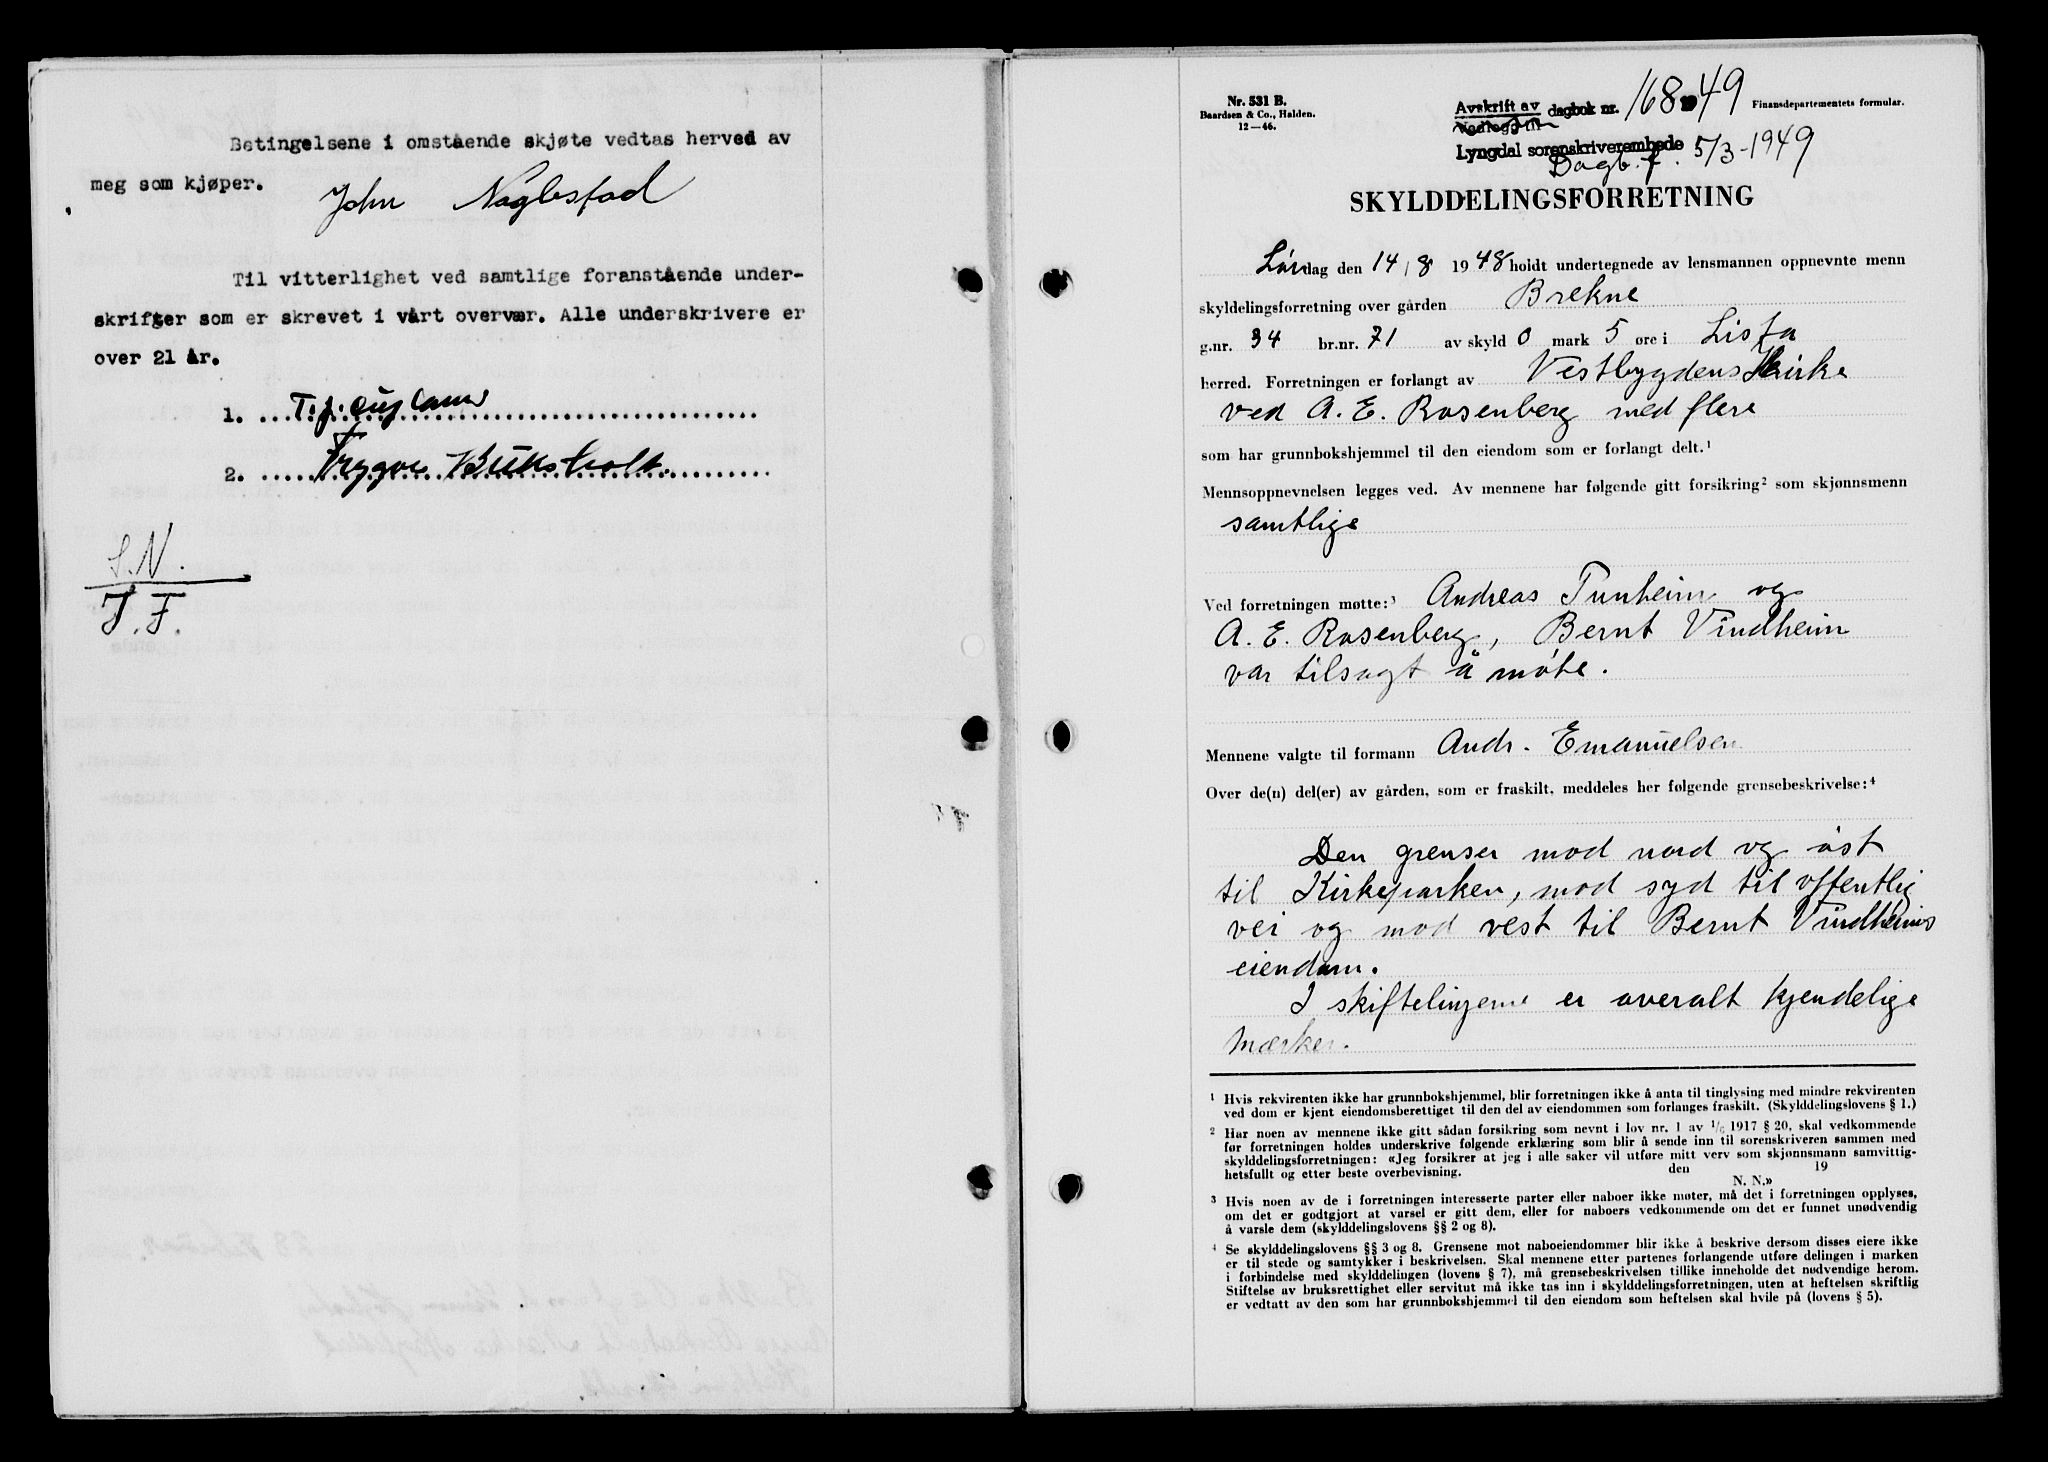 Betingelsene i omstående skjøte vedtas herved av
meg som kjøper.
John Naglestad
Til vitterlighet ved samtlige foranstående under-
skrifter som er skrevet i vårt overvær. Alle underskrivere er
over 21 år.
1.
2. Trygve Buksholt.
S.N.
J.F.
Nr. 531 B.
Baardsen & Co., Halden.
12—46.
Avskrift av
Vedlegg til
dagbok nr. 168 1949
Finansdepartementets formular.
Lyngdal sorenskriverembede
Dagb. f. 5/3-1949
SKYLDDELINGSFORRETNING
Lørdag den 14/8 1948 holdt undertegnede av lensmannen oppnevnte menn
skyldelingsforretning over gården Brekne
g.nr. 34 br.nr. 71 av skyld 0 mark 5 øre i Lista
herred. Forretningen er forlangt av Vestbygdens Kirke
ved A. E. Rosenberg med flere
som har grunnbokshjemmel til den eiendom som er forlangt delt.¹
Mennsoppnevnelsen legges ved. Av mennene har følgende gitt forsikring² som skjønnsmenn
samtlige
Ved forretningen møtte:³ Andreas Tunheim og
A. E. Rosenberg, Bernt Vindheim
var tilsagt å møte.
Mennene valgte til formann Andr. Emanuelsen
Over de(n) del(er) av gården, som er fraskilt, meddeles her følgende grensebeskrivelse:⁴
Den grenser mod nord og øst
til Kirkeparken, mod syd til offentlig
vei og mod vest til Bernt Vindheims
eiendom.
I skiftelinjerne er overalt kjendelige
mærker.
¹ Hvis rekvirenten ikke har grunnbokshjemmel, blir forretningen ikke å anta til tinglysing med mindre rekvirenten
ved dom er kjent eiendomsberettiget til den del av eiendommen som forlanges fraskilt. (Skylddelingslovens § 1.)
² Har noen av mennene ikke gitt sådan forsikring som nevnt i lov nr. 1 av 1/6 1917 § 20, skal vedkommende
før forretningen holdes underskrive følgende erklæring som blir å sende inn til sorenskriveren sammen med
skylddelingsforretningen: «Jeg forsikrer at jeg i alle saker vil utføre mitt verv som skjønnsmann samvittig-
hetsfullt og etter beste overbevisning. den 19
N. N.»
³ Hvis noen av de i forretningen interesserte parter eller naboer ikke møter, må det i forretningen opplyses,
om det er godtgjort at varsel er gitt dem, eller for naboers vedkommende om det er funnet unødvendig
å varsle dem (skylddelingslovens §§ 2 og 8).
⁴ Se skylddelingslovens §§ 3 og 8. Grensene mot naboeiendommer blir ikke å beskrive dersom disses eiere ikke
er til stede og samtykker i beskrivelsen. Skal mennene etter partenes forlangende utføre delingen i marken
i forbindelse med skylddelingen (lovens § 7), må grensebeskrivelsen tillike inneholde det nødvendige herom.
Stiftelse av bruksrettighet eller servitut må ikke tas inn i skylddelingsforretningen, uten at heftelsen skriftlig
er vedtatt av den som har grunnbokshjemmel til den eiendom som heftelsen skal hvile på (lovens § 5).